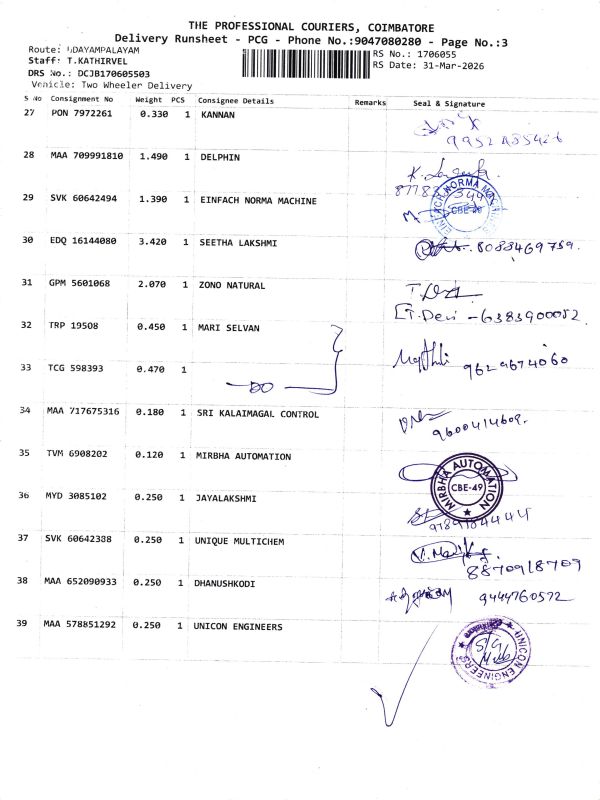 THE PROFESSIONAL COURIERS, COIMBATORE
Delivery Runsheet - PCG - Phone No.:9047080280 - Page No.:3
Route: UDAYAMPALAYAM
RS No.: 1706055
Staff: T.KATHIRVEL
RS Date: 31-Mar-2026
DRS No.: DCJB170605503
Vehicle: Two Wheeler Delivery
S No Consignment No Weight PCS Consignee Details Remarks Seal & Signature
27 PON 7972261 0.330 1 KANNAN
28 MAA 709991810 1.490 1 DELPHIN
29 SVK 60642494 1.390 1 EINFACH NORMA MACHINE
CBE-49
30 EDQ 16144080 3.420 1 SEETHA LAKSHMI
8088469759.
31 GPM 5601068 2.070 1 ZONO NATURAL
T. Devi - 6383900052
32 TRP 19508 0.450 1 MARI SELVAN
33 TCG 598393 0.470 1
DO
9629674060
34 MAA 717675316 0.180 1 SRI KALAIMAGAL CONTROL
9600414609.
35 TVM 6908202 0.120 1 MIRBHA AUTOMATION
MIRBHA AUTOMATION CBE-49
36 MYD 3085102 0.250 1 JAYALAKSHMI
9789184444
37 SVK 60642388 0.250 1 UNIQUE MULTICHEM
8870918709
38 MAA 652090933 0.250 1 DHANUSHKODI
9444760572
39 MAA 578851292 0.250 1 UNICON ENGINEERS
UNICON ENGINEERS